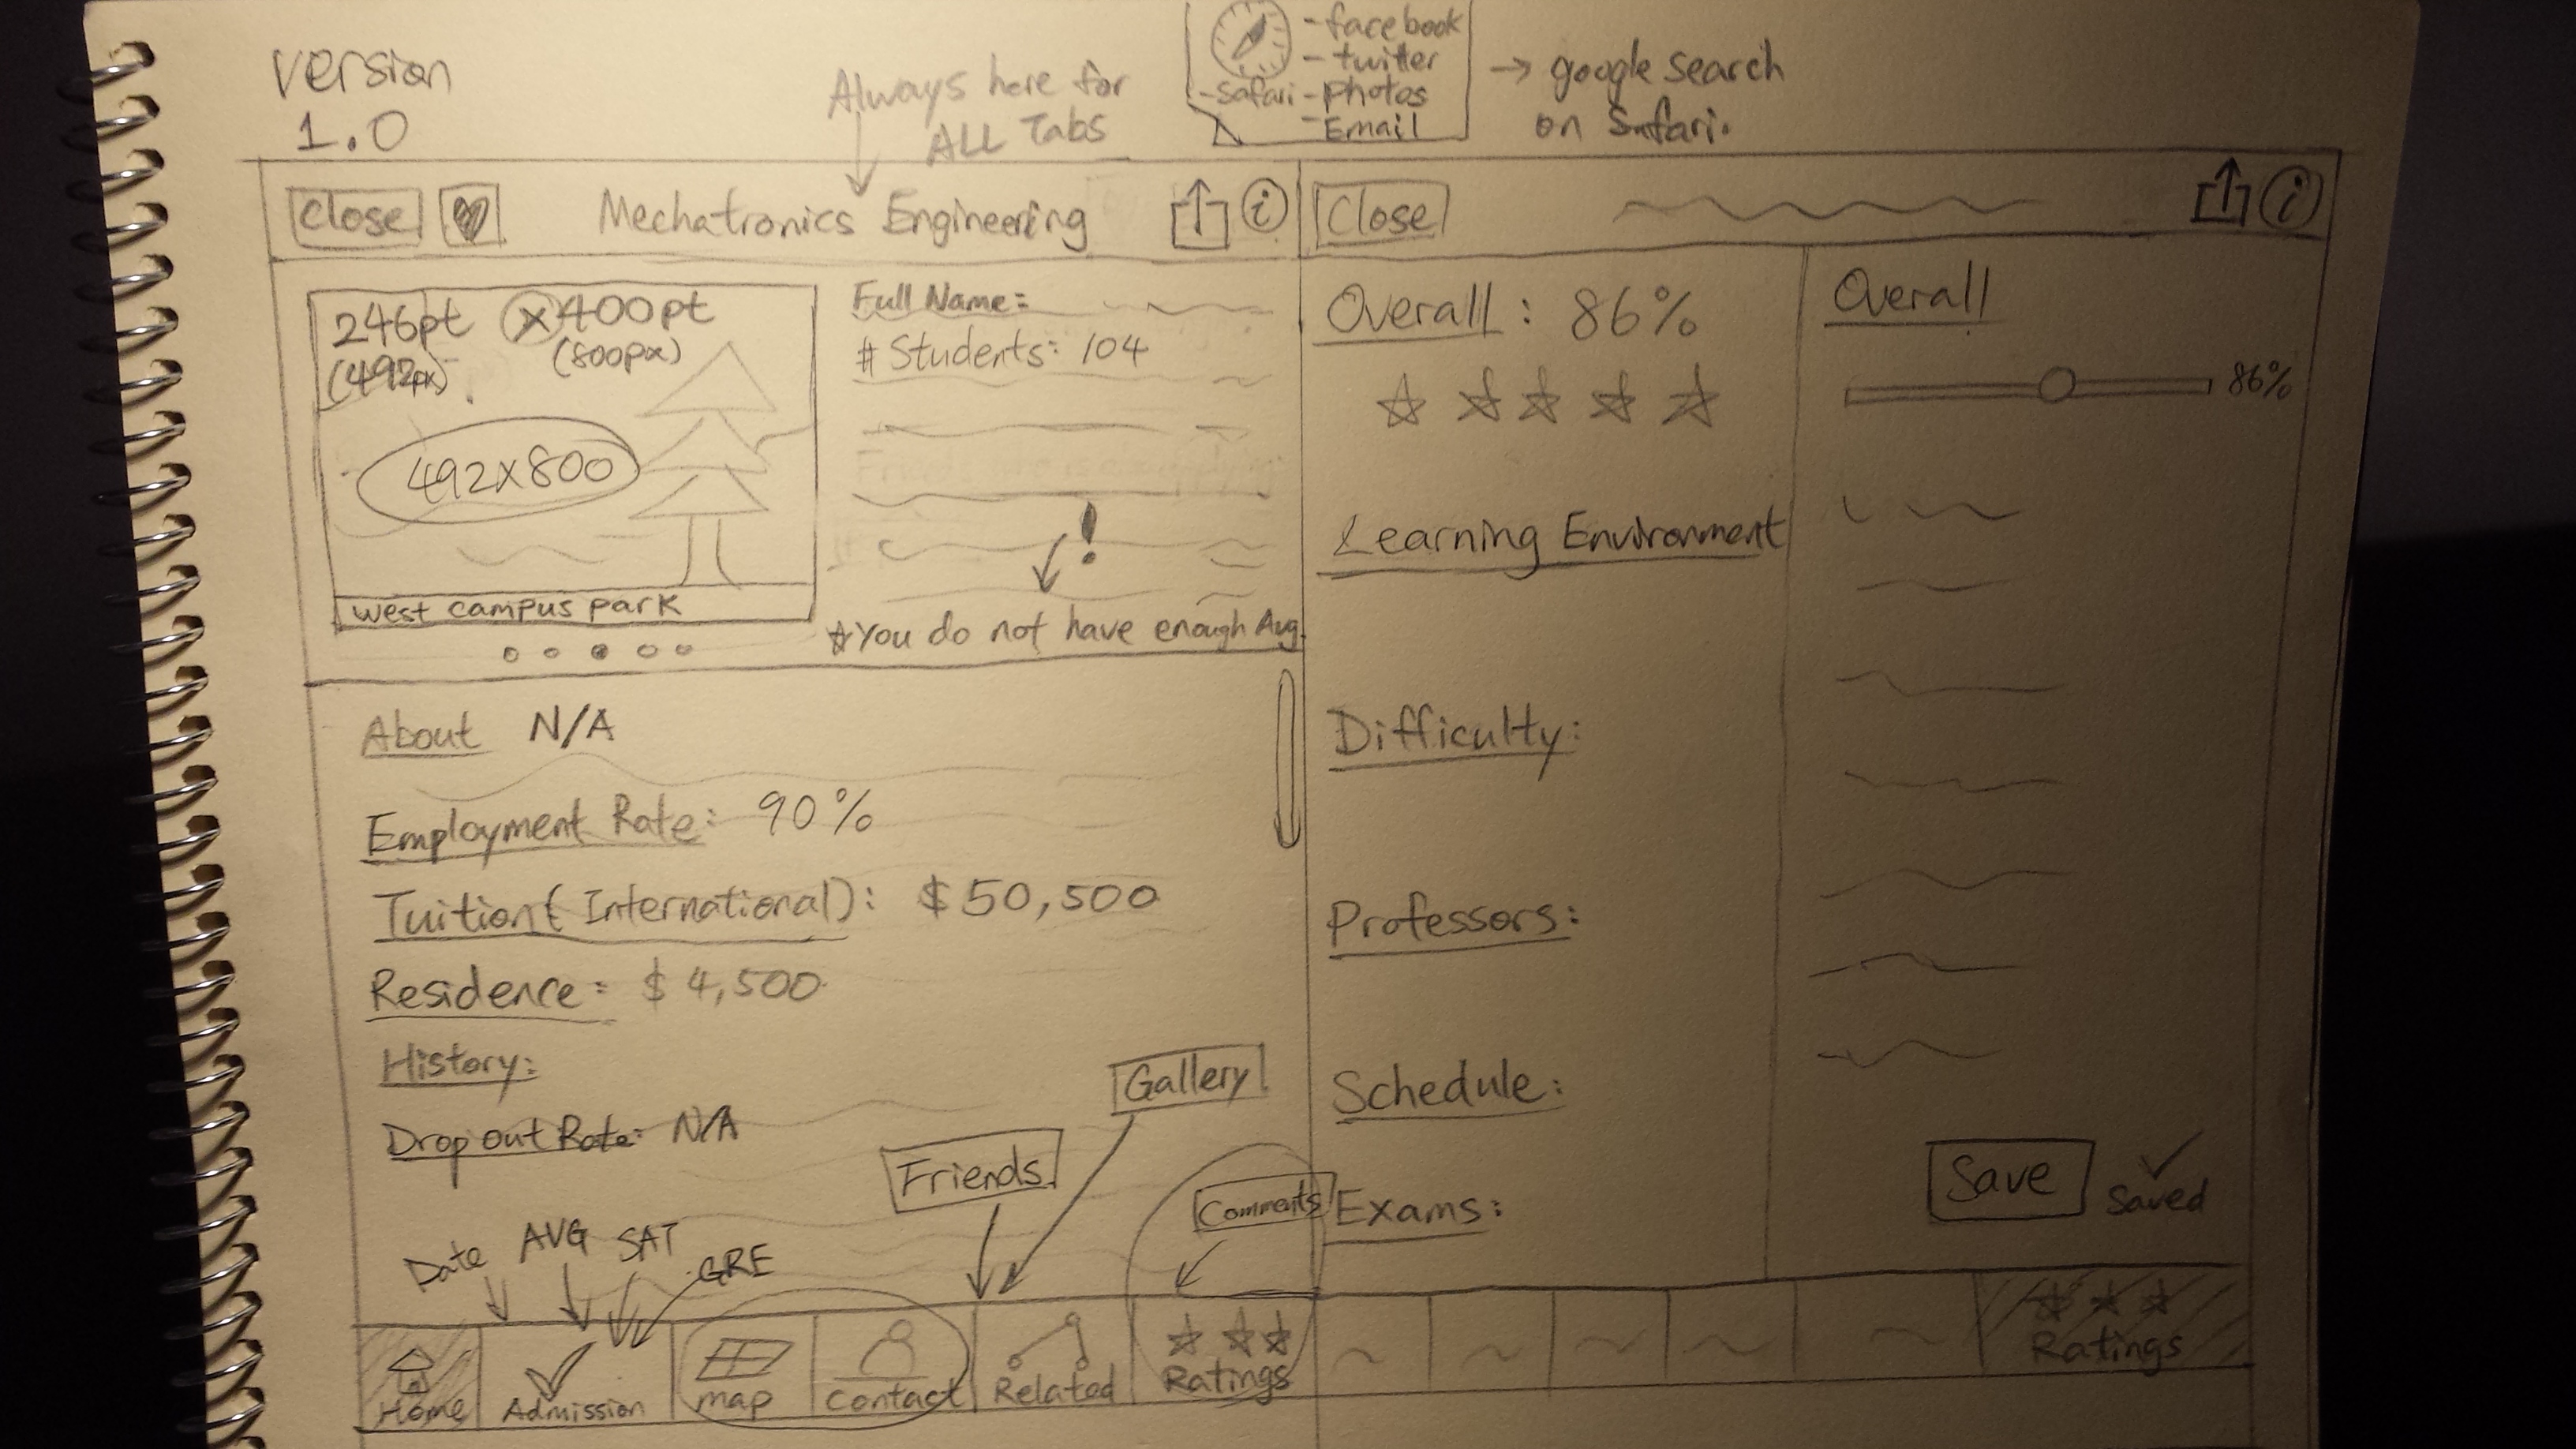 version
1.0
Always here for
ALL Tabs
- facebook
- twitter
- Safari - Photos
- Email
→ google search
on Safari.
Close
Mechatronics Engineering
i
246pt × 400pt
(492px) (800px)
492X800
west campus park
Full Name:
# Students: 104
!
☆You do not have enough Avg.
About N/A
Employment Rate: 90%
Tuition (International): $50,500
Residence: $4,500
History:
Drop out Rate: N/A
Gallery
Friends
Comments
Date AVG SAT GRE
Home Admission map contact Related Ratings
Close
i
Overall: 86%
Learning Environment
Difficulty:
Professors:
Schedule:
Exams:
Overall
86%
Save
Saved
Ratings